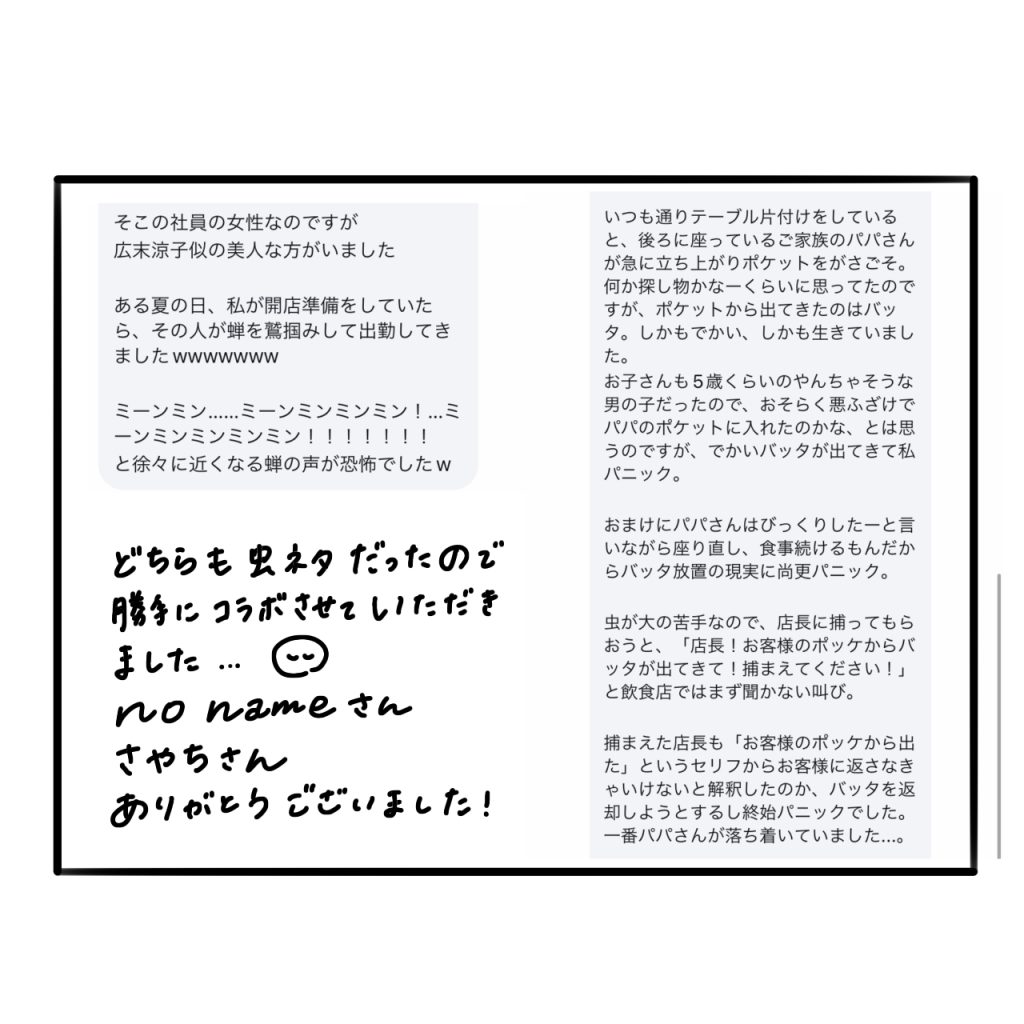 そこの社員の女性なのですが
広末涼子似の美人な方がいました
ある夏の日、私が開店準備をしていた
ら、その人が蝉を鷲掴みして出勤してき
ましたwwwwwww
ミーンミン……ミーンミンミンミン！…ミ
ーンミンミンミンミン！！！！！！！
と徐々に近くなる蝉の声が恐怖でしたw
どちらも虫ネタだったので
勝手にコラボさせていただき
ました…
no nameさん
さやちさん
ありがとうございました！
いつも通りテーブル片付けをしている
と、後ろに座っているご家族のパパさん
が急に立ち上がりポケットをがさごそ。
何か探し物かなーくらいに思ってたので
すが、ポケットから出てきたのはバッ
タ。しかもでかい、しかも生きていまし
た。
お子さんも5歳くらいのやんちゃそうな
男の子だったので、おそらく悪ふざけで
パパのポケットに入れたのかな、とは思
うのですが、でかいバッタが出てきて私
パニック。
おまけにパパさんはびっくりしたーと言
いながら座り直し、食事続けるもんだか
らバッタ放置の現実に尚更パニック。
虫が大の苦手なので、店長に捕ってもら
おうと、「店長！お客様のポッケからバ
ッタが出てきて！捕まえてください！」
と飲食店ではまず聞かない叫び。
捕まえた店長も「お客様のポッケから出
た」というセリフからお客様に返さなき
ゃいけないと解釈したのか、バッタを返
却しようとするし終始パニックでした。
一番パパさんが落ち着いていました…。